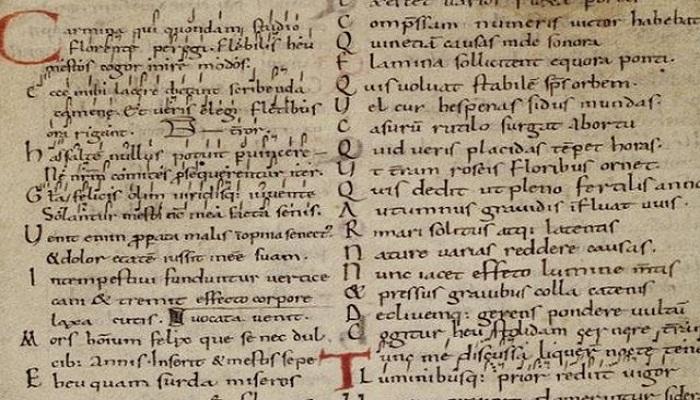 Carmina qui quondam studio
florente peregi. Flebilis heu
mestos cogor inire modos.
Ecce mihi lacere dictant scribenda
camene. Et veris elegi fletibus
ora rigant.
has saltē nullus potuit puincere
Ne nrm̄ comites psequerentur iter.
Gła felicis olim viridisq; iuuente
Solantur mesti nc̄ mea facta senis.
Uenit enim ppata malis inopina senect;
& dolor etatē iussit inēē suam.
Intempestiui funduntur vertice
cani & tremit effeto corpore
laxa cutis. vocata uenit.
Mors hominum felix que se nec dul
cib; Annis Inserit & mestis sepe
Eheu quam surda miseros
Compssam numeris uictor habebat
Quinetiā causas unde sonora
Flamina sollicitent equora ponti.
Quis uoluat stabilē sps orbem.
Uel cur hesperias sidus in undas.
Casurū rutilo surgat Abortu
Quid ueris placidas tēpet horas.
Ut terram roseis floribus ornet.
Quis dedit ut pleno fertilis anno
Autumnus grauidis īfluat uuis.
Rimari solitus atq; latentis
Nature uarias reddere causas.
Nunc iacet effeto lumine mtis
& pressus grauibus colla catenis
Decliuemq; gerens pondere uultū
Cogitur heu stolidam cernere
Tunc me discussa liquer nocte
Luminibusq; prior rediit uigor